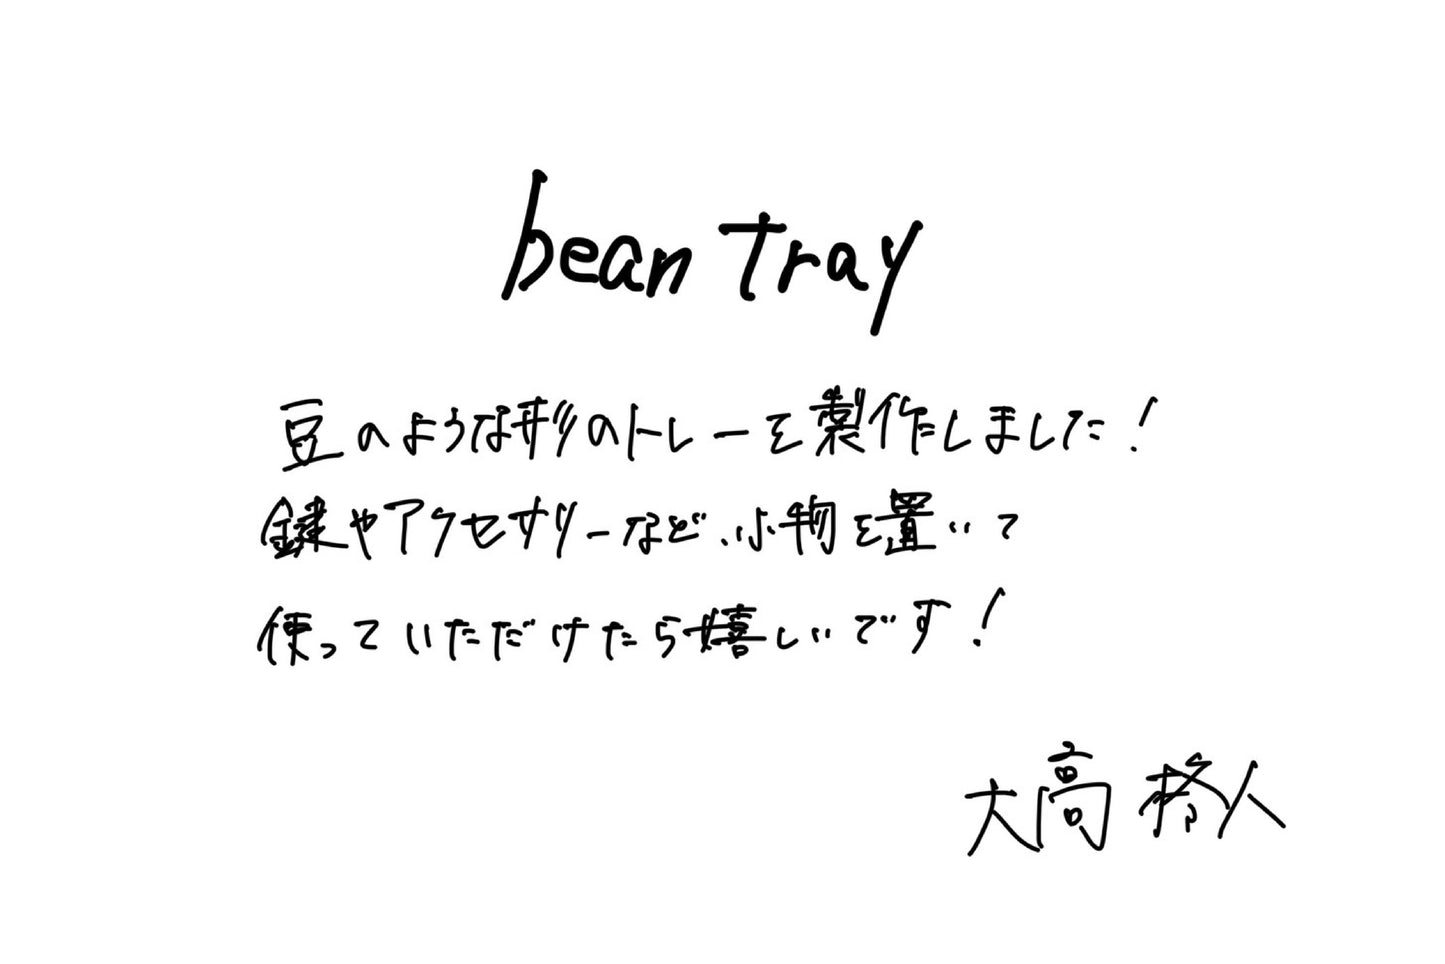 bean tray
豆のような形のトレーを製作しました！
鍵やアクセサリーなど、小物を置いて
使っていただけたら嬉しいです！
大高 柊人